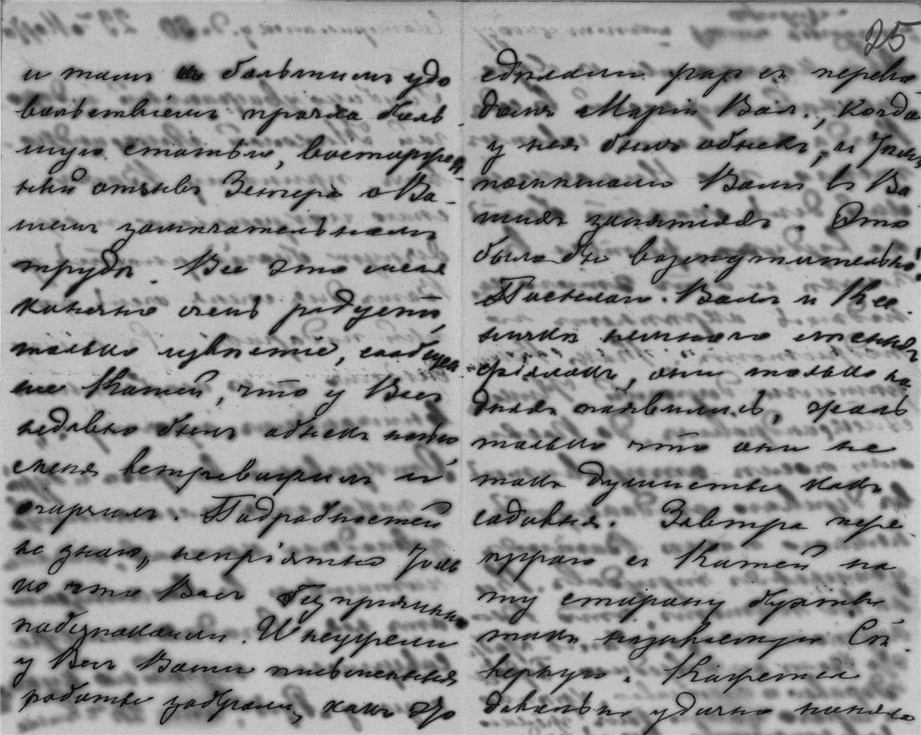 25
и тамъ съ большимъ удо
вольствіемъ прочла боль
шую статью, восторжен
ный отзывъ о Ва-
шемъ замѣчательномъ
трудѣ. Все это меня
конечно очень радуетъ,
только извѣстіе, сообщен
ное Катей, что у Васъ
недавно былъ обыскъ
меня встревожилъ и
огорчилъ. Подробностей
не знаю, непріятно толь
ко что Васъ безпричинно
побезпокоили. И неужели
у Васъ Ваши письменныя
работы забрали, какъ это
сдѣлали разъ съ перево
домъ Маріи Вал., когда
у нея былъ обыскъ, и
помѣшали Вамъ въ Ва
шихъ занятіяхъ. Это
было бы возмутительно!
Посылаю Вамъ и Кс
немного
фіалокъ, они только на
дняхъ появились, жаль
только что они не
такъ душисты какъ
садовыя. Завтра пере
ѣзжаю съ Катей на
ту сторону бухты
такъ называемую Сѣ
верную. Кажется
довольно удачно наняла